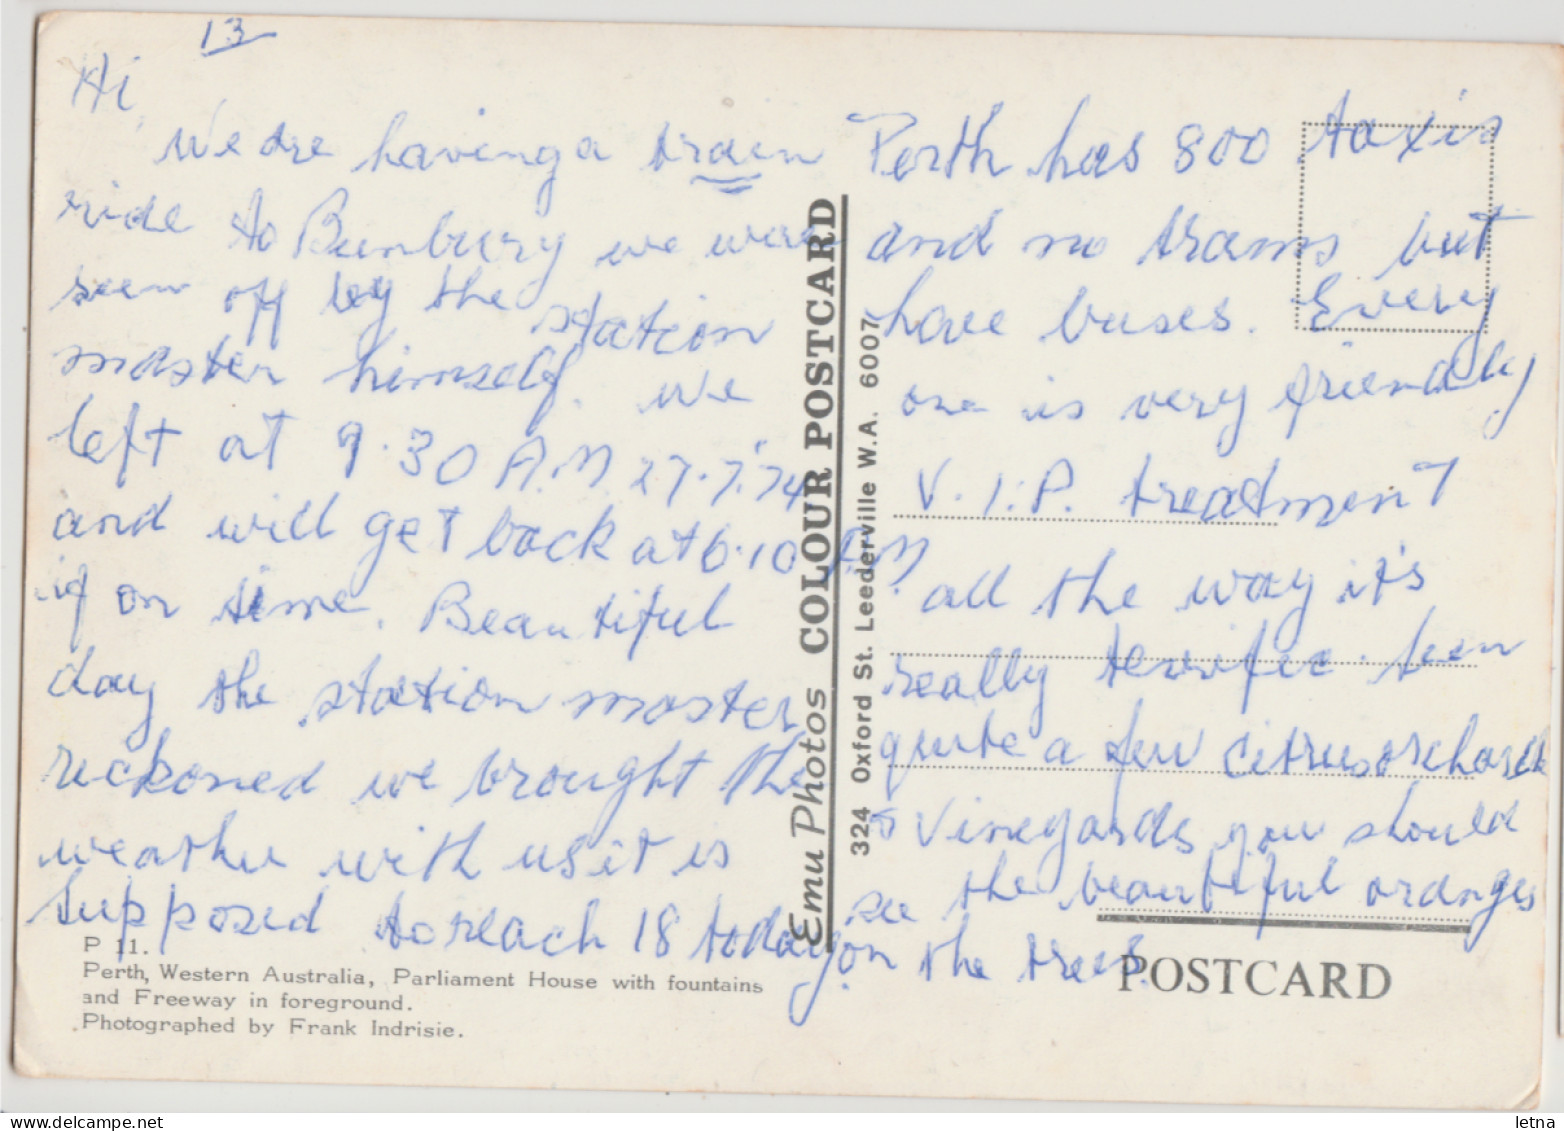 13
Hi,
We are having a train
ride to Bunbury we were
seen off by the station
master himself. We
left at 9.30 A.M 27.7.74
and will get back at 6.10 P.M
if on time. Beautiful
day the station master
reckoned we brought the
weather with us it is
supposed to reach 18 today.
P 11.
Perth, Western Australia, Parliament House with fountains
and Freeway in foreground.
Photographed by Frank Indrisie.
Emu Photos COLOUR POSTCARD
324 Oxford St. Leederville W.A. 6007
Perth has 800 taxis
and no trams but
have buses. Every
one is very friendly
V.I.P. treatment
all the way it's
really terrific. Seen
quite a few citrus orchards
& Vineyards you should
see the beautiful oranges
on the trees.
POSTCARD
www.delcampe.net
letna